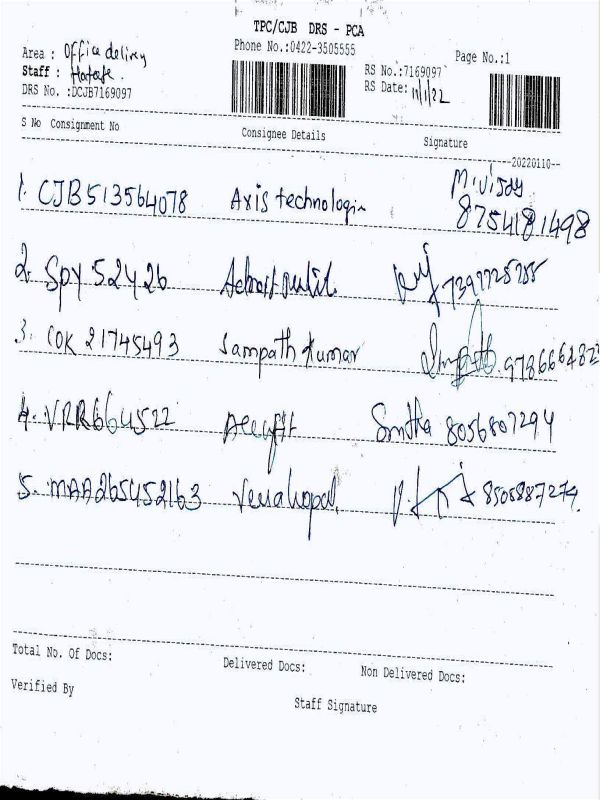 TPC/CJB DRS - PCA
Area : Office delivry
Phone No.:0422-3505555
Page No.:1
Staff :
RS No.:7169097
DRS No. :DCJB7169097
RS Date: 11/1/22
S No Consignment No Consignee Details Signature
--20220110--
1. CJB513564078 Axis technologin M.Vijay
8754181498
2. SPY 52426
3. COK 21745493 Sampath kumar
4. VRR664522 Smitha 8056807294
5. MAA265452163 Venahopal 8505887274.
Total No. Of Docs: Delivered Docs: Non Delivered Docs:
Verified By Staff Signature